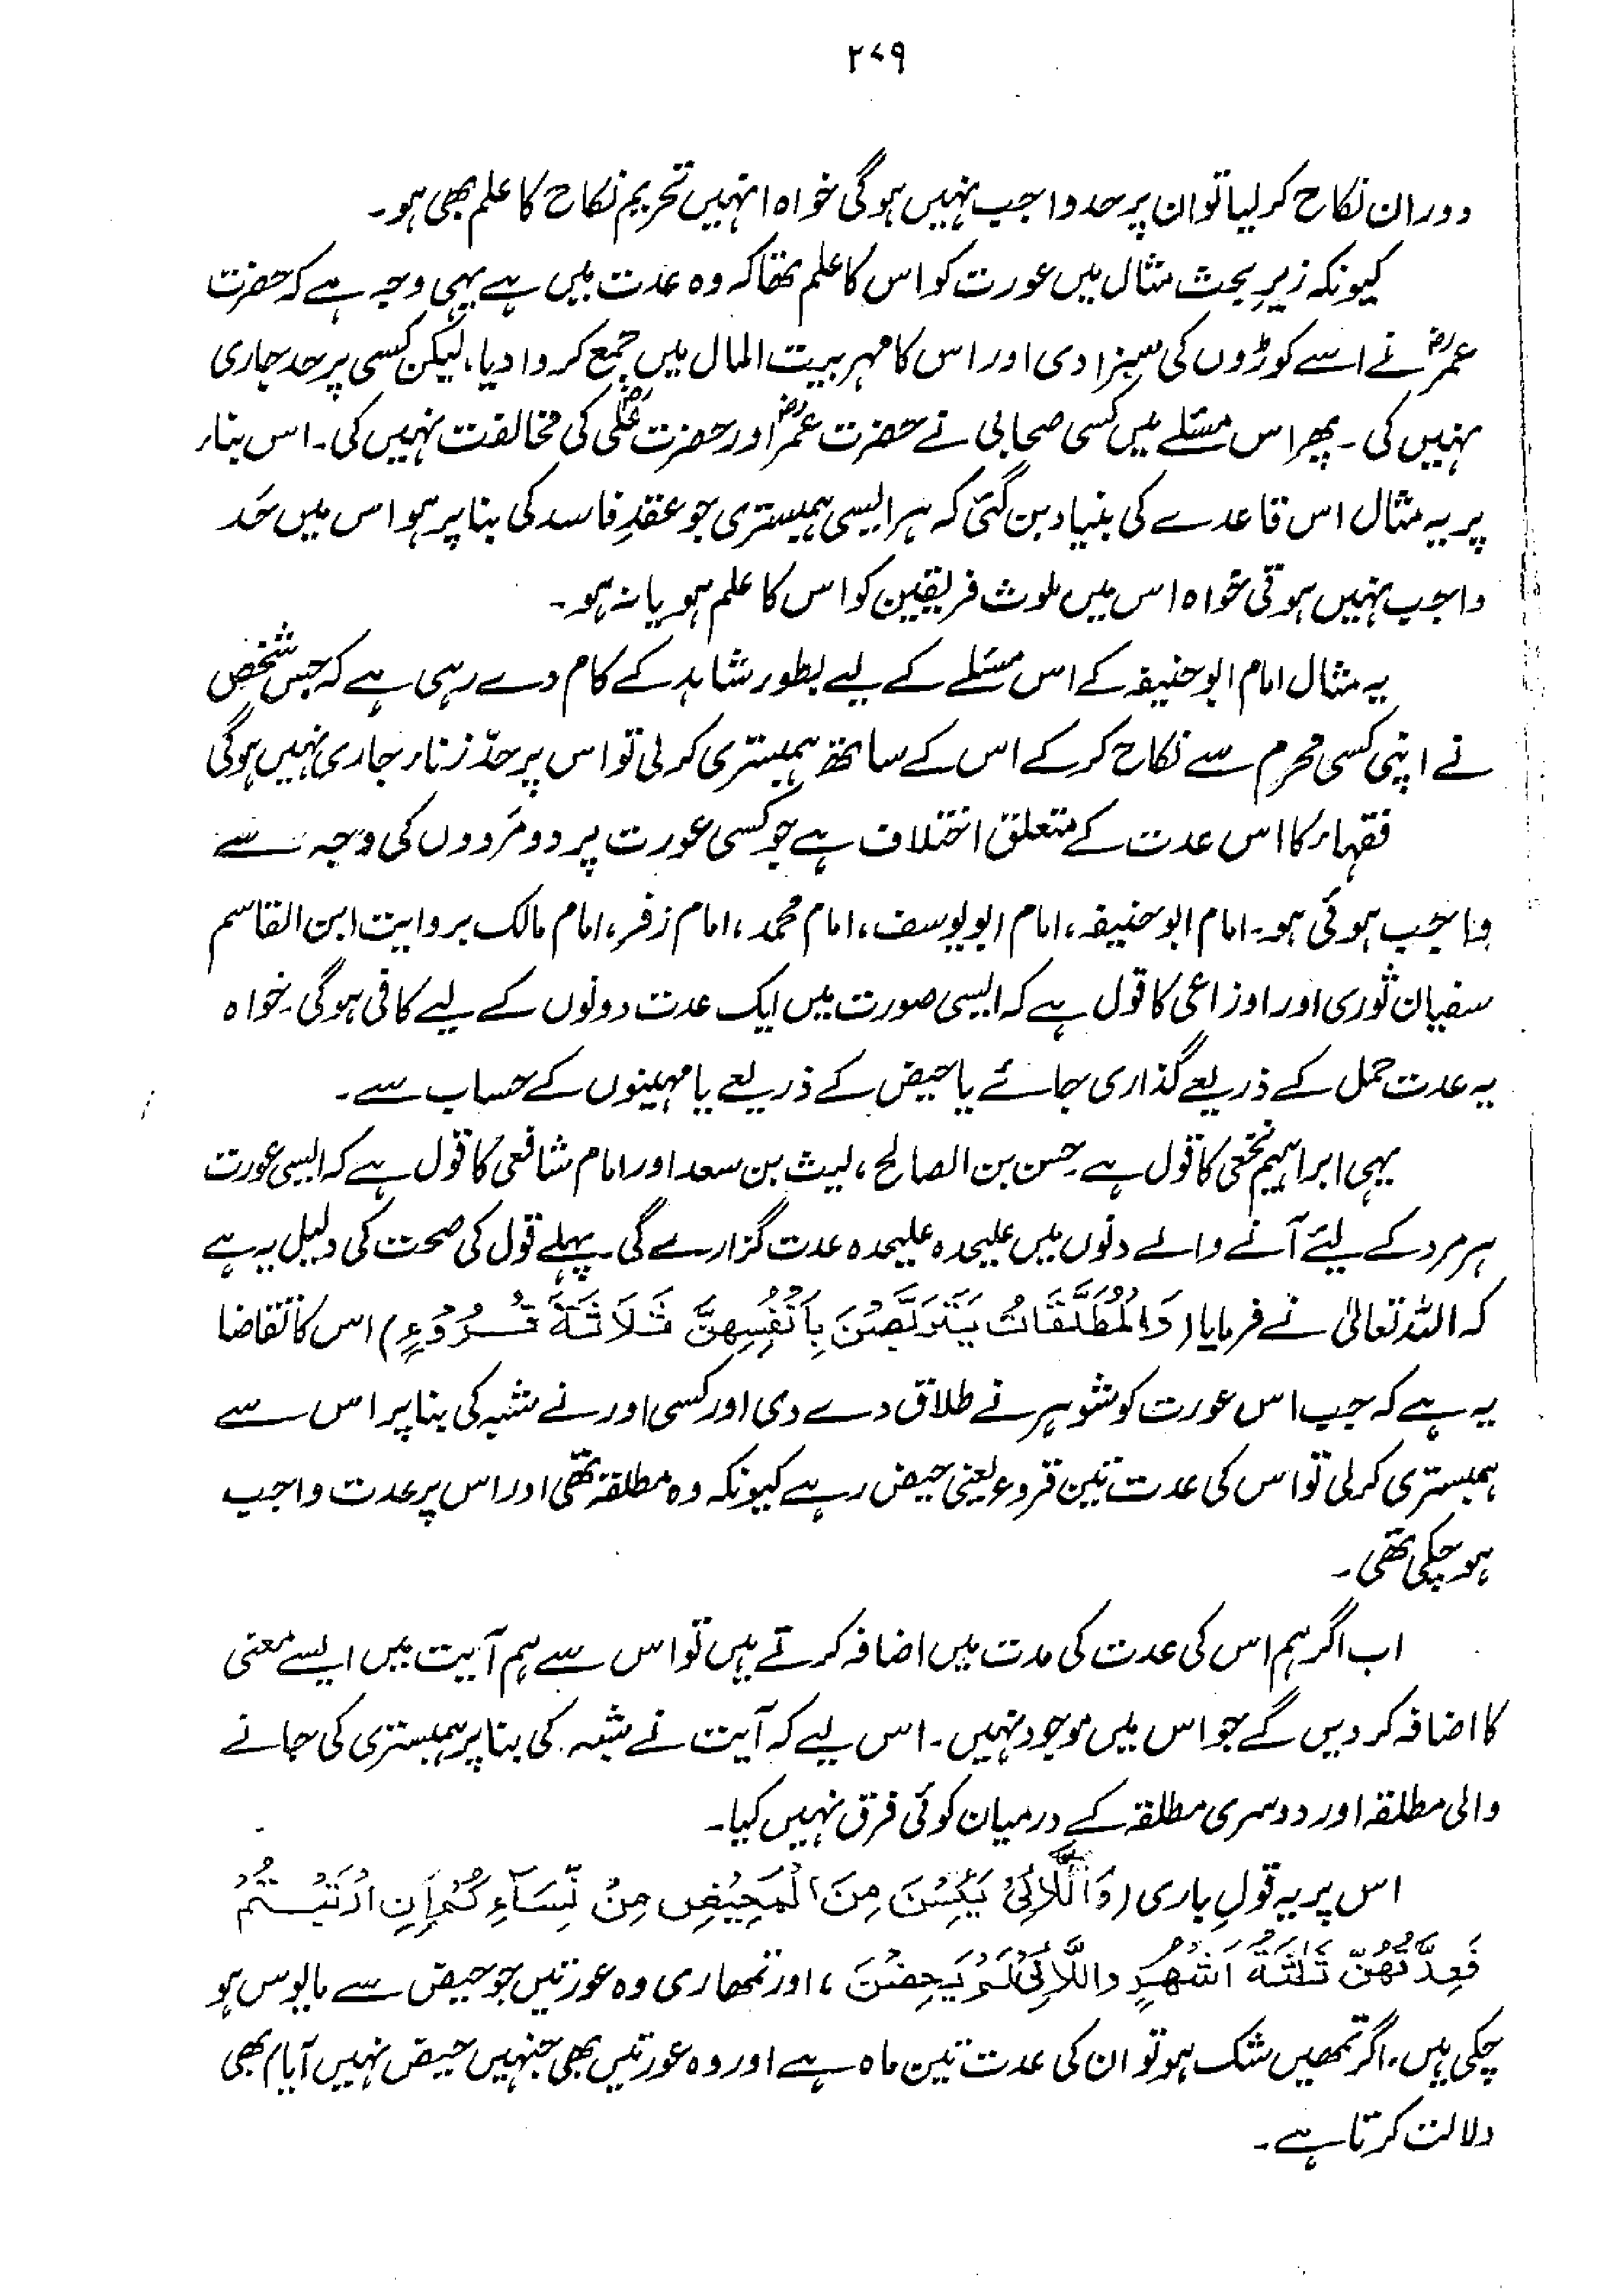 ۲۷۹
دوران نکاح کر لیا تو ان پر حد واجب نہیں ہوگی خواہ انہیں تحریم نکاح کا علم بھی ہو۔
کیونکہ زیرِ بحث مثال میں عورت کو اس کا علم تھا کہ وہ عدت میں ہے یہی وجہ ہے کہ حضرت
عمرؓ نے اسے کوڑوں کی سزا دی اور اس کا مہر بیت المال میں جمع کروا دیا، لیکن کسی پر حد جاری
نہیں کی۔ پھر اس مسئلے میں کسی صحابی نے حضرت عمرؓ اور حضرت علیؓ کی مخالفت نہیں کی۔ اس بناء
پر یہ مثال اس قاعدے کی بنیاد بن گئی کہ ہر ایسی ہمبستری جو عقدِ فاسد کی بنا پر ہو اس میں حَد
واجب نہیں ہوتی خواہ اس میں ملوث فریقین کو اس کا علم ہو یا نہ ہو۔
یہ مثال امام ابوحنیفہ کے اس مسئلے کے لیے بطور شاہد کے کام دے رہی ہے کہ جس شخص
نے اپنی کسی محرم سے نکاح کر کے اس کے ساتھ ہمبستری کر لی تو اس پر حدّ زناء جاری نہیں ہوگی
فقہاء کا اس عدت کے متعلق اختلاف ہے جو کسی عورت پر دو مَردوں کی وجہ سے
واجب ہوئی ہو۔ امام ابوحنیفہ، امام ابویوسف، امام محمد، امام زفر، امام مالک بروایت ابن القاسم
سفیان ثوری اور اوزاعی کا قول ہے کہ ایسی صورت میں ایک عدت دونوں کے لیے کافی ہوگی۔ خواہ
یہ عدت حمل کے ذریعے گذاری جائے یا حیض کے ذریعے یا مہینوں کے حساب سے۔
یہی ابراہیم نخعی کا قول ہے۔ حسن بن الصالح، لیث بن سعد اور امام شافعی کا قول ہے کہ ایسی عورت
ہر مرد کے لیئے آنے والے دنوں میں علیحدہ علیحدہ عدت گزارے گی۔ پہلے قول کی صحت کی دلیل یہ ہے
کہ اللہ تعالیٰ نے فرمایا (وَالْمُطَلَّقَاتُ يَتَرَبَّصْنَ بِاَنْفُسِهِنَّ ثَلَاثَةَ قُرُوْءٍ) اس کا تقاضا
یہ ہے کہ جب اس عورت کو شوہر نے طلاق دے دی اور کسی اور نے شبہ کی بنا پر اس سے
ہمبستری کر لی تو اس کی عدت تین قروء یعنی حیض رہے کیونکہ وہ مطلقہ تھی اور اس پر عدت واجب
ہو چکی تھی۔
اب اگر ہم اس کی عدت کی مدت میں اضافہ کرتے ہیں تو اس سے ہم آیت میں ایسے معنی
کا اضافہ کر دیں گے جو اس میں موجود نہیں۔ اس لیے کہ آیت نے شبہ کی بنا پر ہمبستری کی جانے
والی مطلقہ اور دوسری مطلقہ کے درمیان کوئی فرق نہیں کیا۔
اس پر یہ قولِ باری (وَاللَّائِيْ يَئِسْنَ مِنَ الْمَحِيْضِ مِنْ نِّسَآءِكُمْ اِنِ ارْتَبْتُمْ
فَعِدَّتُهُنَّ ثَلٰثَةُ اَشْهُرٍ واللَّائِيْ لَمْ يَحِضْنَ، اور تمھاری وہ عورتیں جو حیض سے مایوس ہو
چکی ہیں، اگر تمھیں شک ہو تو ان کی عدت تین ماہ ہے اور وہ عورتیں بھی جنہیں حیض نہیں آیا) بھی
دلالت کرتا ہے۔